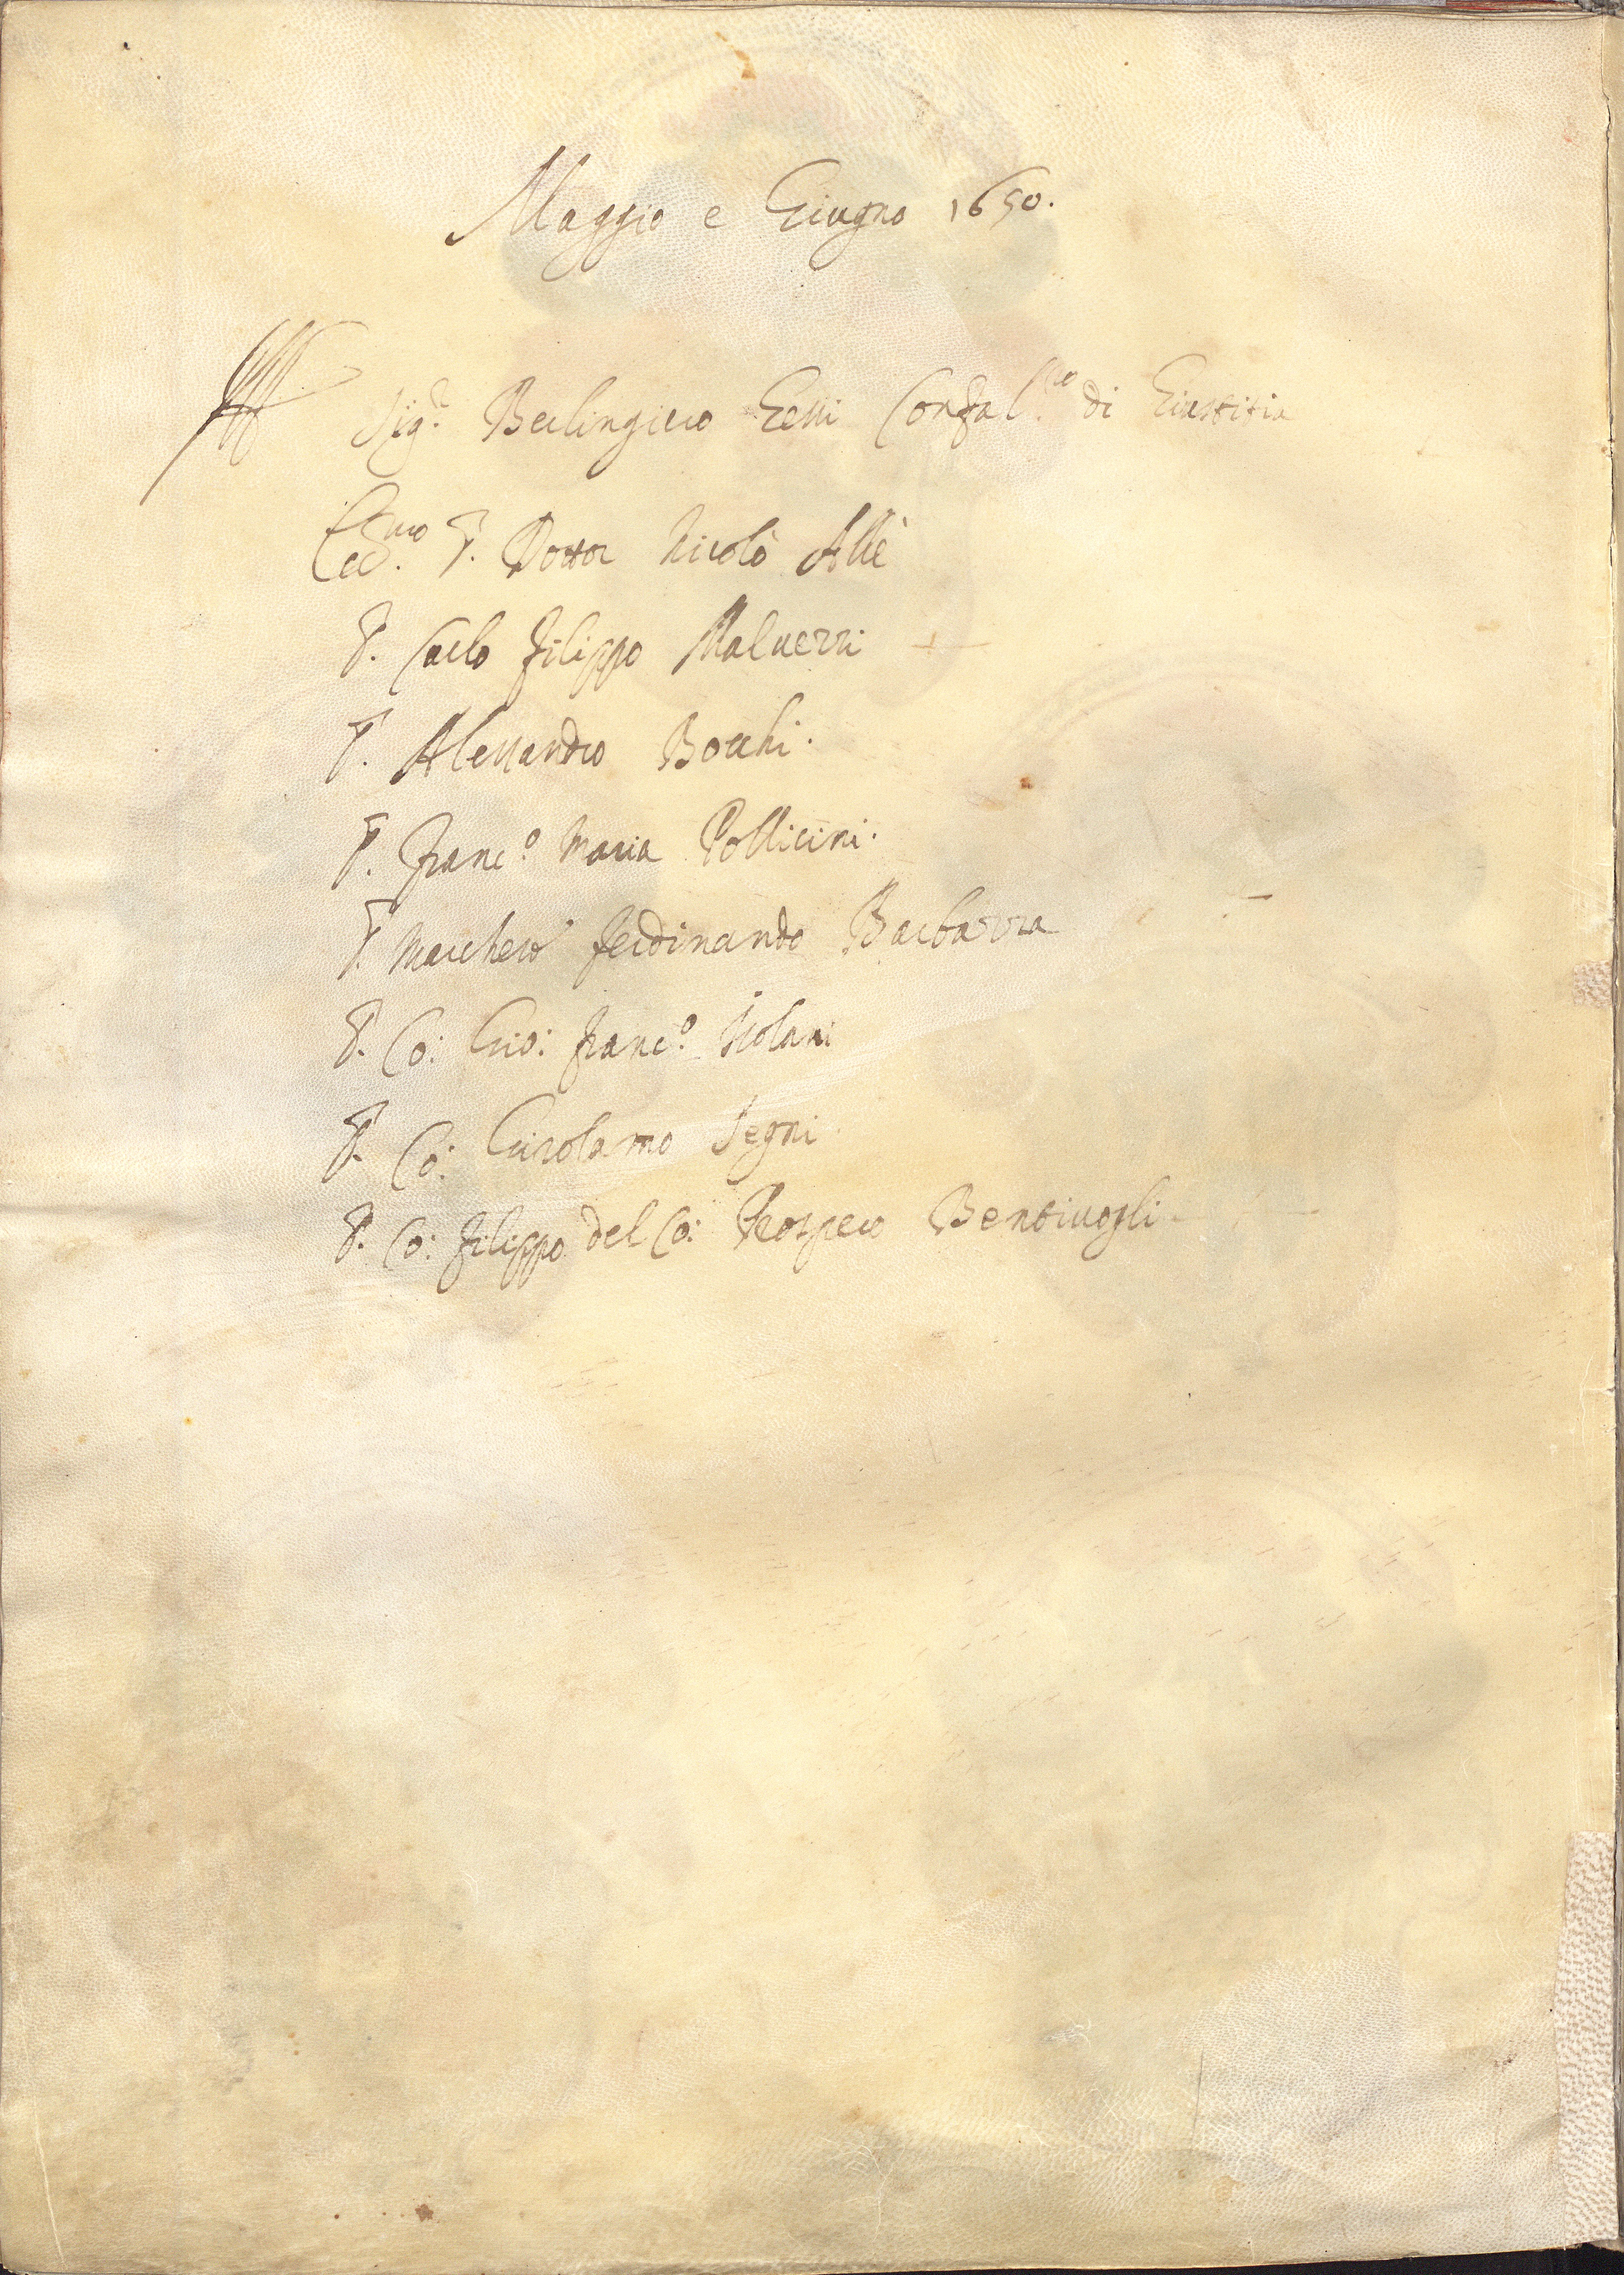 Maggio e Giugno 1650.
Sig.r Berlingiero Gessi Confal.re di Giustitia
Ecc.mo S. Dottor Nicolò Allè
S. Carlo Filippo Malvezzi
S. Alessandro Bocchi.
S. Franc.o Maria Pollicini.
S. Marchese Ferdinando Barbazza
S. Co: Gio: Franc.o Isolani
S. Co: Girolamo Segni
S. Co: Filippo del Co: Prospero Bentivogli